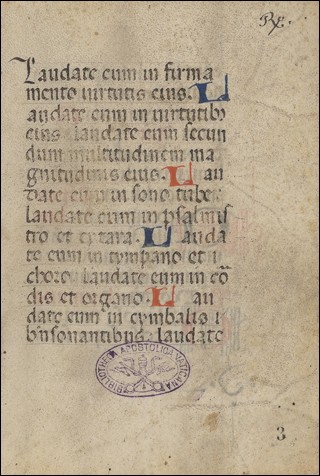 Laudate eum in firma
mento virtutis eius. L
audate eum in virtutib
eius laudate eum secun
dum multitudinem ma
gnitudinis eius. L au
date eum in sono tube
laudate eum in psalmis
tro et cytara. L auda
te eum in tympano et i
choro laudate eum in cō
dis et organo. L au
date eum in cymbalis
sonantibus laudate
BIBLIOTHECA APOSTOLICA VATICANA
3